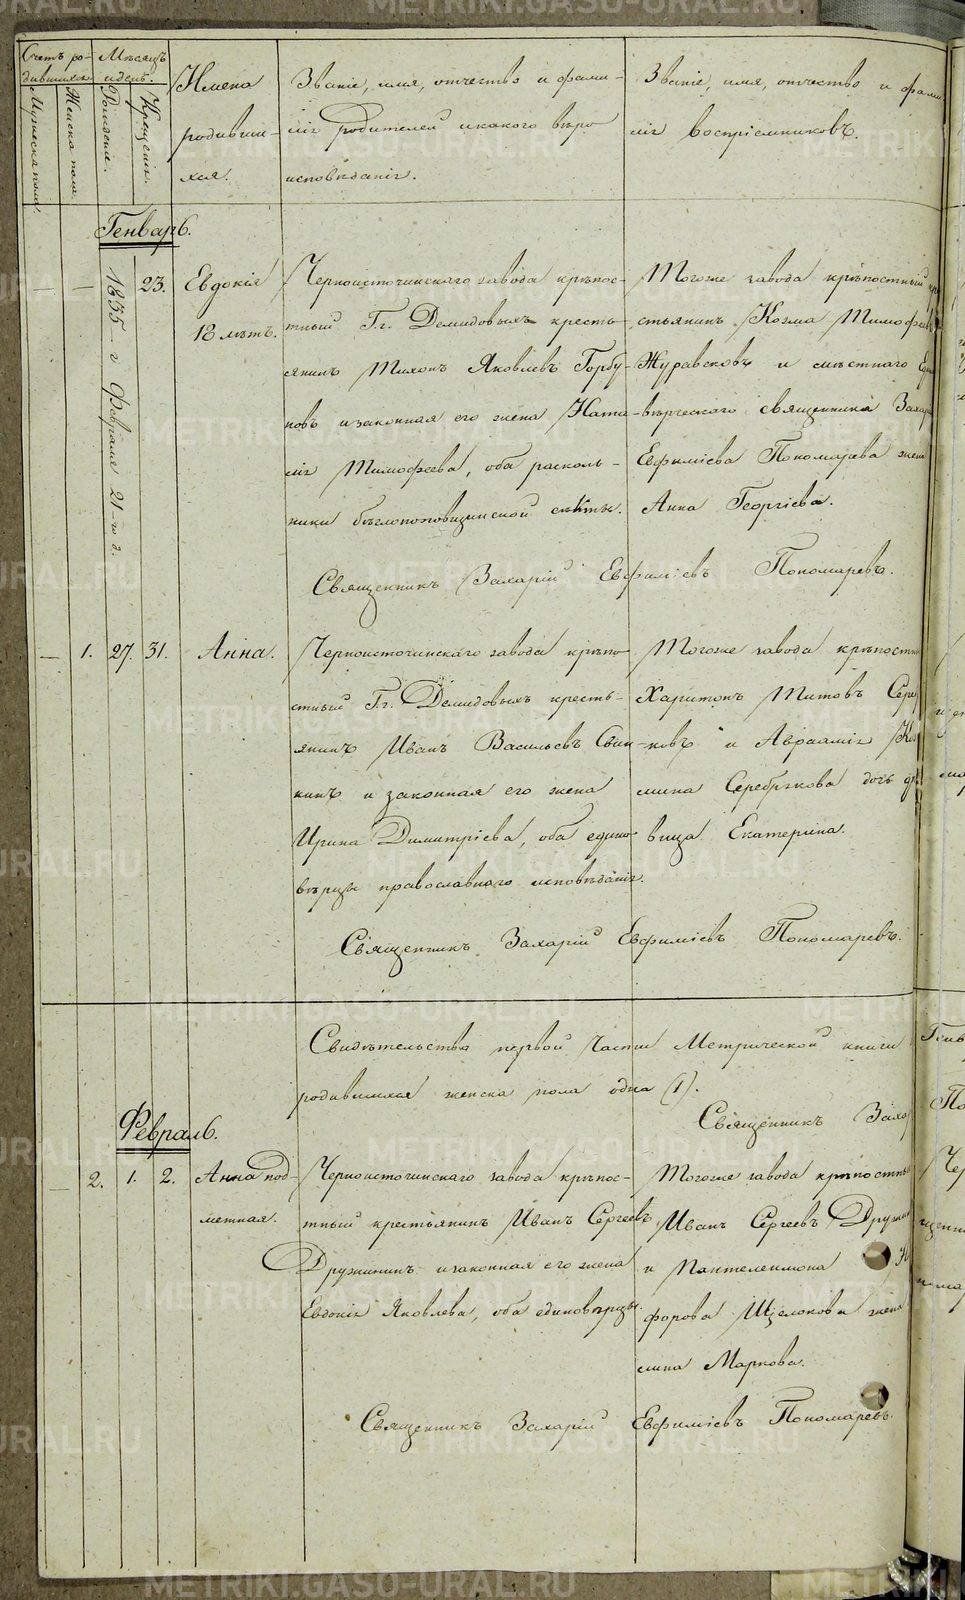 Счетъ ро-
дившихся
Мужеска пола.
Женска пола.
Мѣсяцъ
и день.
Рожденія.
Крещенія.
Имена
родивши-
хся.
Званіе, имя, отчество и фами-
лія родителей и какого вѣро
исповѣданія.
Званіе, имя, отчество и фами
лія воспріемниковъ.
Генварь.
— — 1835 г Февраля 21-го д. 23.
Евдокія
18 лѣтъ.
Черноисточинскаго завода крѣпос-
тный Гг. Демидовыхъ кресть-
янинъ Тихонъ Яковлевъ Горбу-
новъ и законная его жена Ната-
лія Тимофеева, оба расколь-
ники бѣглопоповщинской секты.
Тогоже завода крѣпостный кре
стьянинъ Козма Тимофеевъ
Журавсковъ и мѣстнаго Еди
вѣрческого священника Захар
Евфиміева Пономарева жена
Анна Георгіева.
Священникъ Захарій Евфиміевъ Пономаревъ.
— 1. 27. 31. Анна.
Черноисточинскаго завода крѣпо-
стный Гг. Демидовыхъ кресть-
янинъ Иванъ Васильевъ Свин-
кинъ и законная его жена
Ирина Димитріева, оба едино-
вѣрцы православнаго исповѣданія.
Тогоже завода крѣпостн
Харитонъ Титовъ Сереб
ковъ и Авраамія Коз
мина Серебркова дочь дѣ
вица Екатерина.
Священникъ Захарій Евфиміевъ Пономаревъ.
Свидѣтельства первой Части Метрической книги
родившихся женска пола одна (1).
Священникъ Захар
Февраль.
— 2. 1. 2. Анна под-
метная.
Черноисточинскаго завода крѣпос-
тный крестьянинъ Иванъ Сергеевъ
Дружининъ и законная его жена
Евдокія Яковлева, оба единовѣрцы.
Тогоже завода крѣпостный
Иванъ Сергеевъ Дружин
и Пантелеимона Ни
форова Щелокова жена
Маркова.
Священникъ Захарій Евфиміевъ Пономаревъ.
METRIKI.GASO-URAL.RU